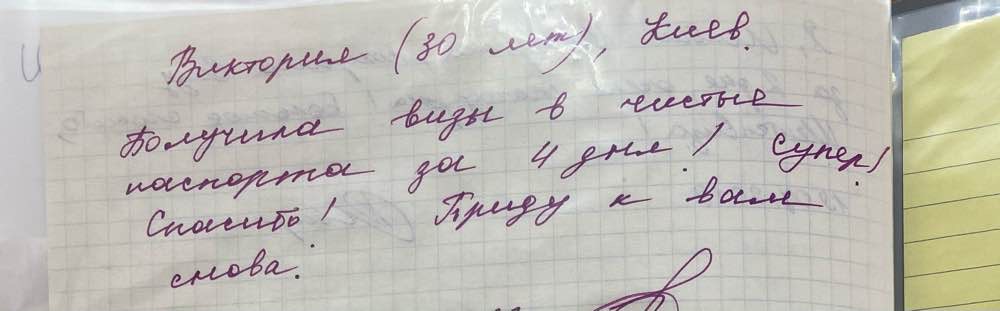 Виктория (30 лет), Киев.
Получила визы в чистые
паспорта за 4 дня! Супер!
Спасибо! Приду к вам
снова.